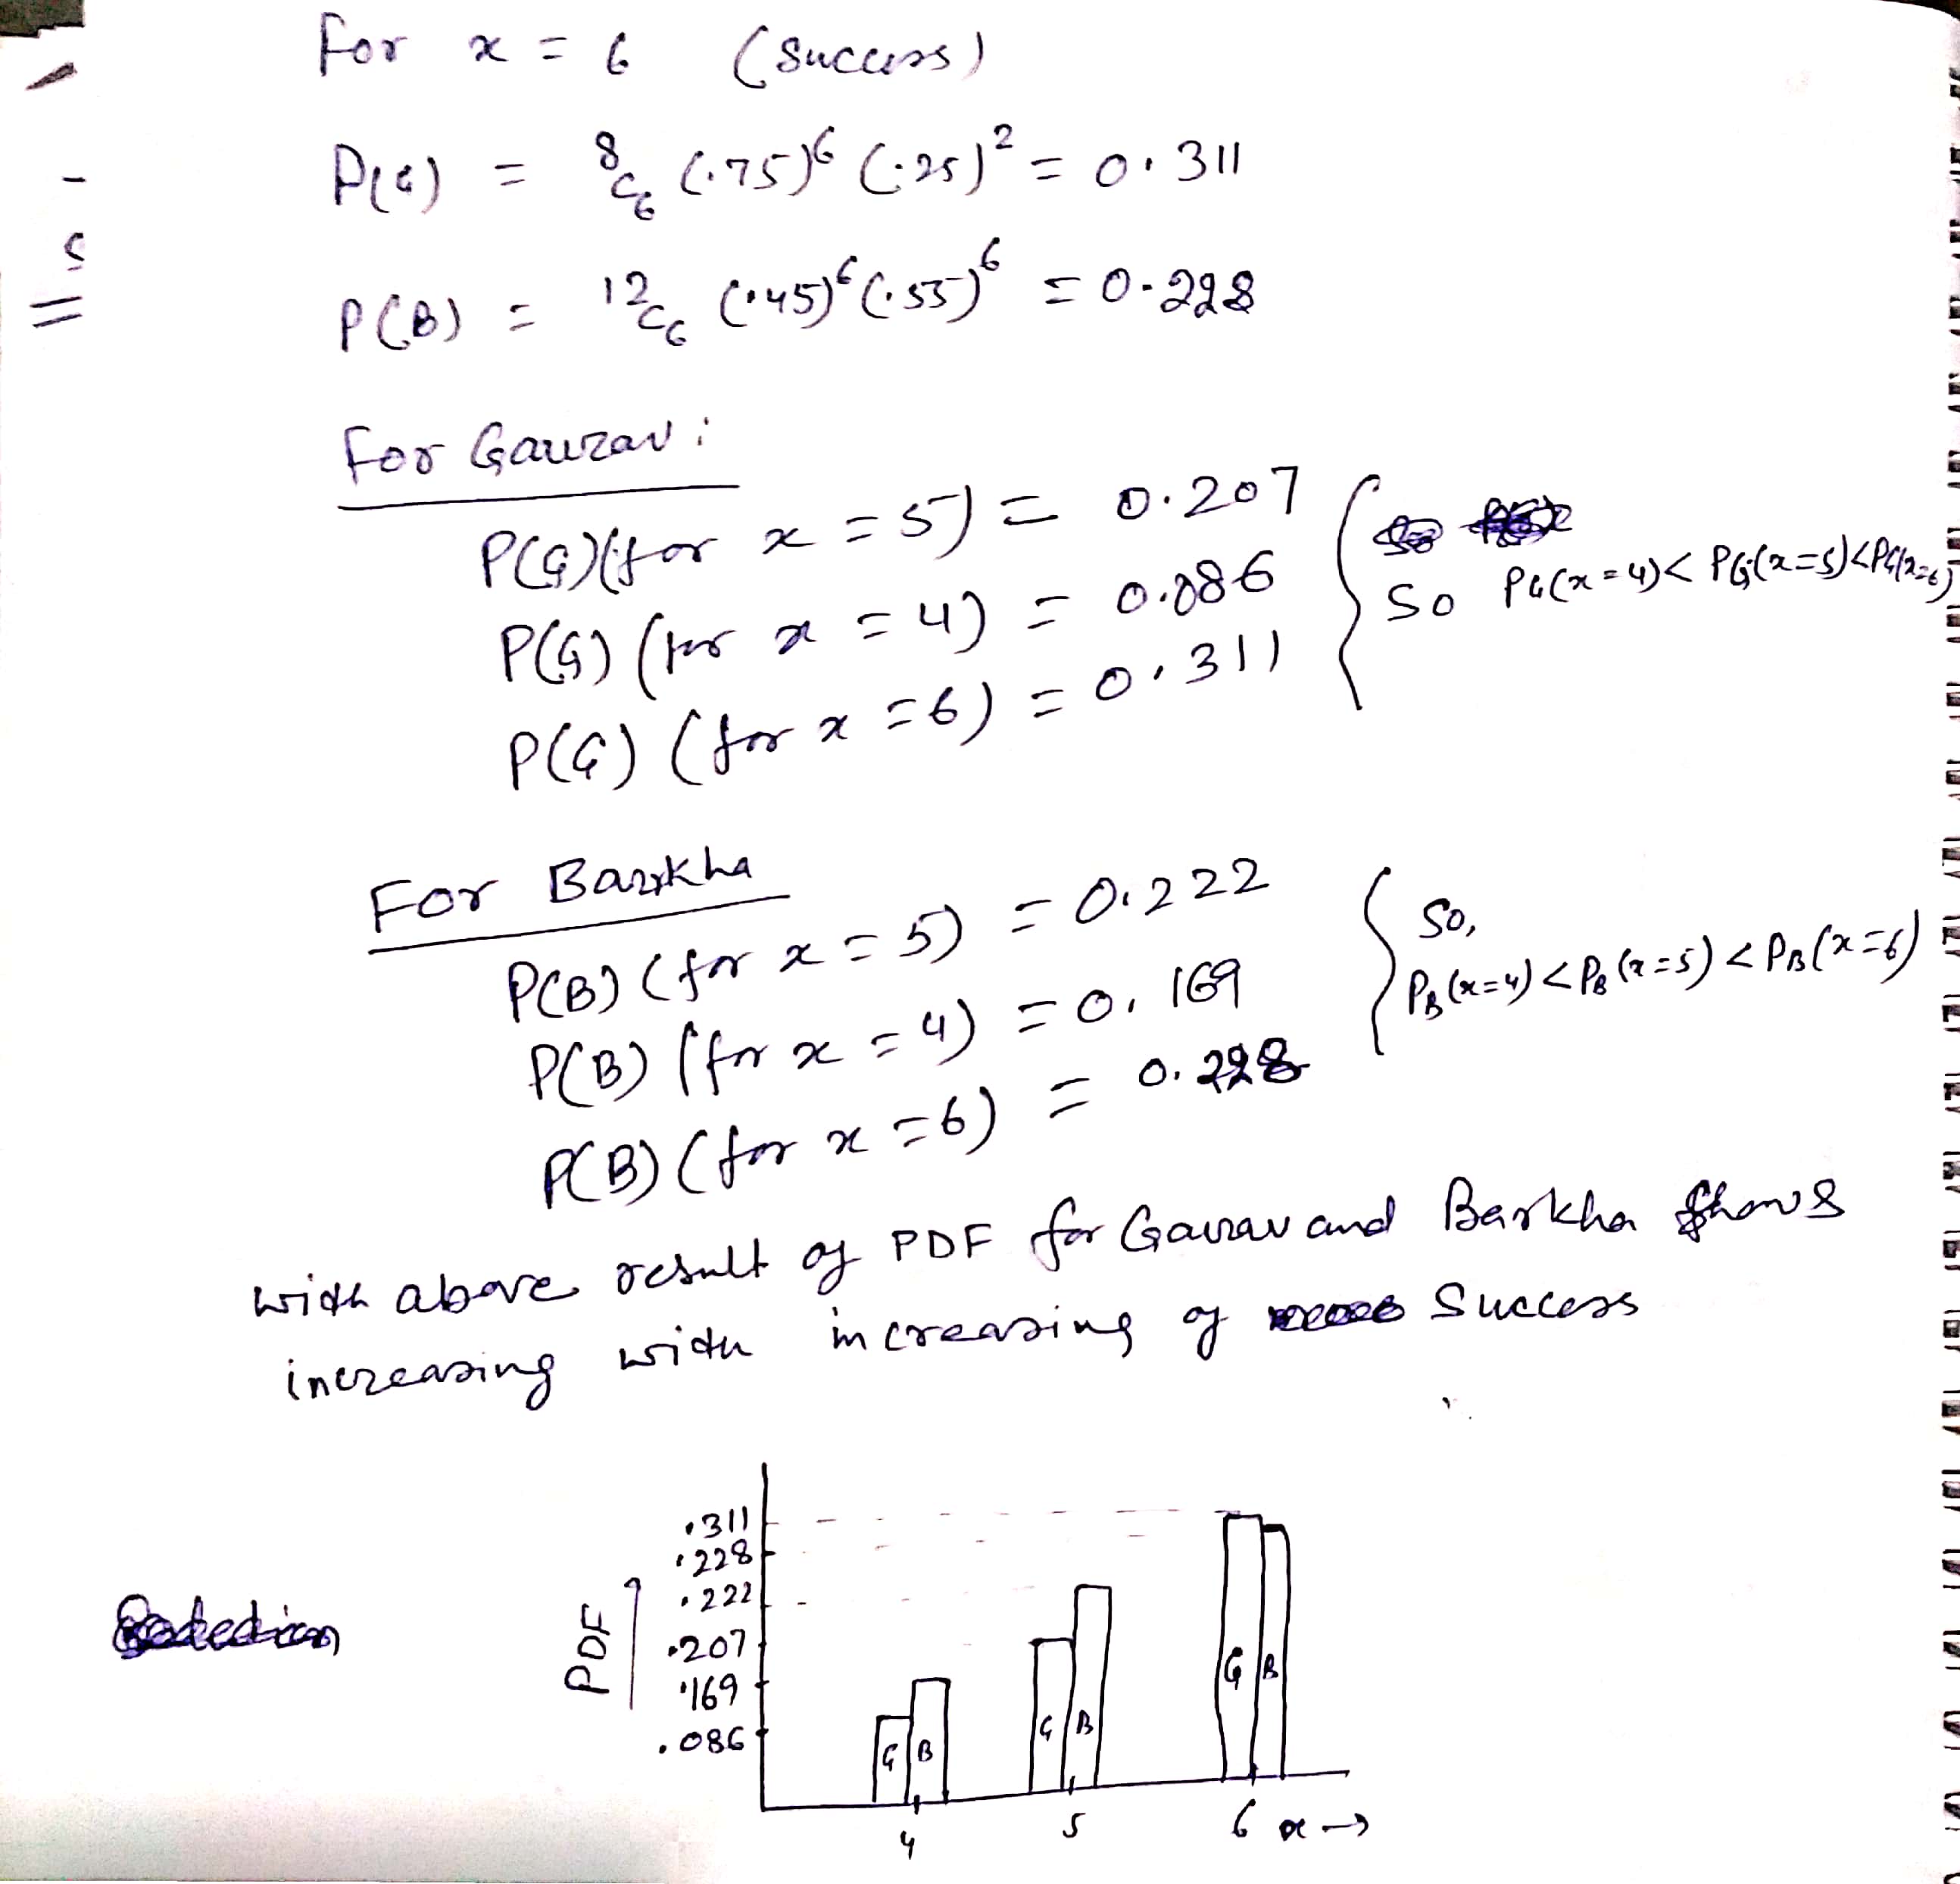 For x = 6 (Success)
P(G) = 8C6 (.75)^6 (.25)^2 = 0.311
P(B) = 12C6 (.45)^6 (.55)^6 = 0.228
For Gaurav :
P(G) (for x = 5) = 0.207
P(G) (for x = 4) = 0.086
P(G) (for x = 6) = 0.311
So PG(x=4) < PG(x=5) < PG(x=6)
For Barkha
P(B) (for x = 5) = 0.222
P(B) (for x = 4) = 0.169
P(B) (for x = 6) = 0.228
So,
PB(x=4) < PB(x=5) < PB(x=6)
with above result of PDF for Gaurav and Barkha shows
increasing with increasing of Success
.311
.228
.222
.207
.169
.086
PDF
G B
G B
G B
4 5 6 x →